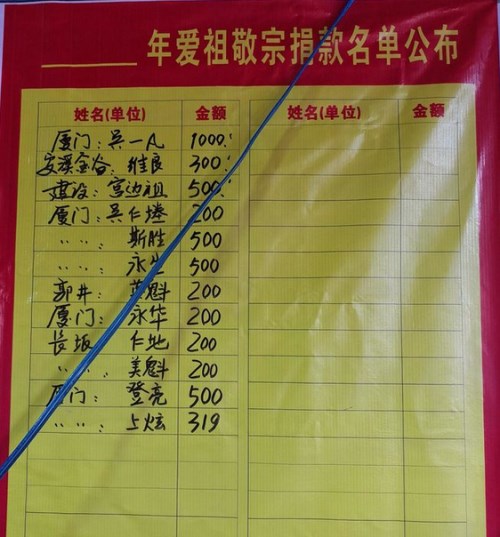 年爱祖敬宗捐款名单公布
姓名(单位) 金额 姓名(单位) 金额
厦门: 吴一凡 1000.
安溪金谷: 维良 300.
建设: 宫边祖 500.
厦门: 吴仁 200
〃〃: 斯胜 500
〃〃: 永 500
郭井: 魁 200
厦门: 永华 200
长坂 仁地 200
〃〃: 美魁 200
厦门: 登亮 500
〃〃: 上炫 319